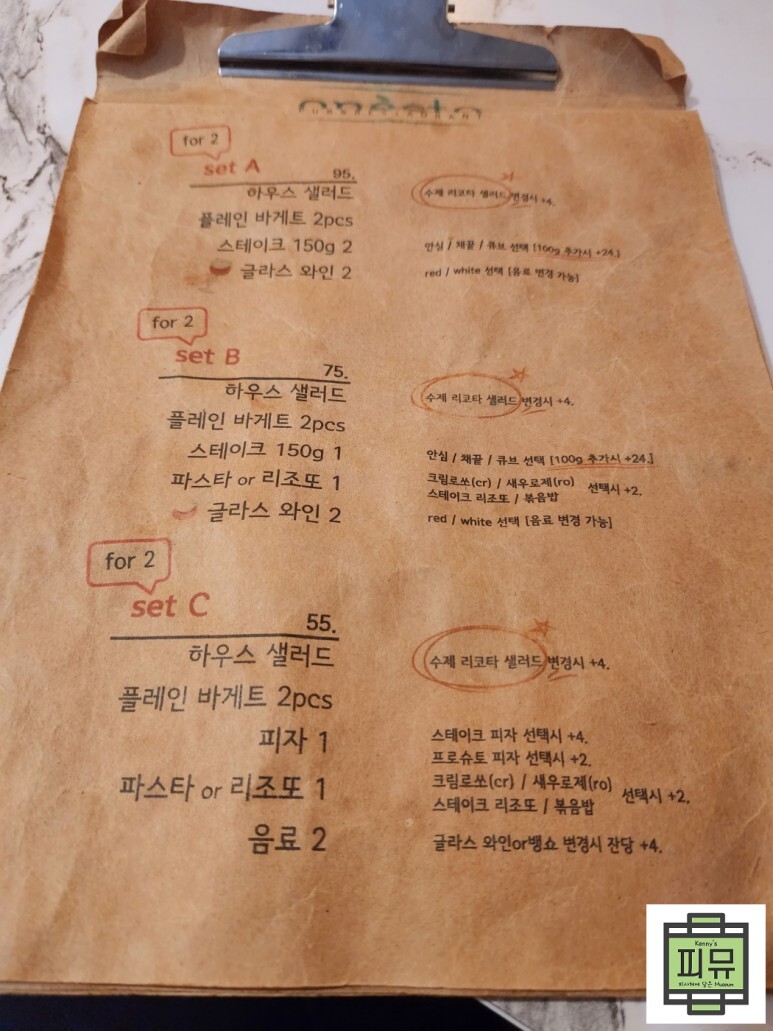 for 2
set A
95.
하우스 샐러드
수제 리코타 샐러드 변경시 +4.
플레인 바게트 2pcs
스테이크 150g 2
안심 / 채끝 / 큐브 선택 [100g 추가시 +24.]
글라스 와인 2
red / white 선택 [음료 변경 가능]
for 2
set B
75.
하우스 샐러드
수제 리코타 샐러드 변경시 +4.
플레인 바게트 2pcs
스테이크 150g 1
안심 / 채끝 / 큐브 선택 [100g 추가시 +24.]
파스타 or 리조또 1
크림로쏘(cr) / 새우로제(ro)
스테이크 리조또 / 볶음밥
선택시 +2.
글라스 와인 2
red / white 선택 [음료 변경 가능]
for 2
set C
55.
하우스 샐러드
수제 리코타 샐러드 변경시 +4.
플레인 바게트 2pcs
피자 1
스테이크 피자 선택시 +4.
프로슈토 피자 선택시 +2.
파스타 or 리조또 1
크림로쏘(cr) / 새우로제(ro)
스테이크 리조또 / 볶음밥
선택시 +2.
음료 2
글라스 와인or뱅쇼 변경시 잔당 +4.
Kenny's
피뮤